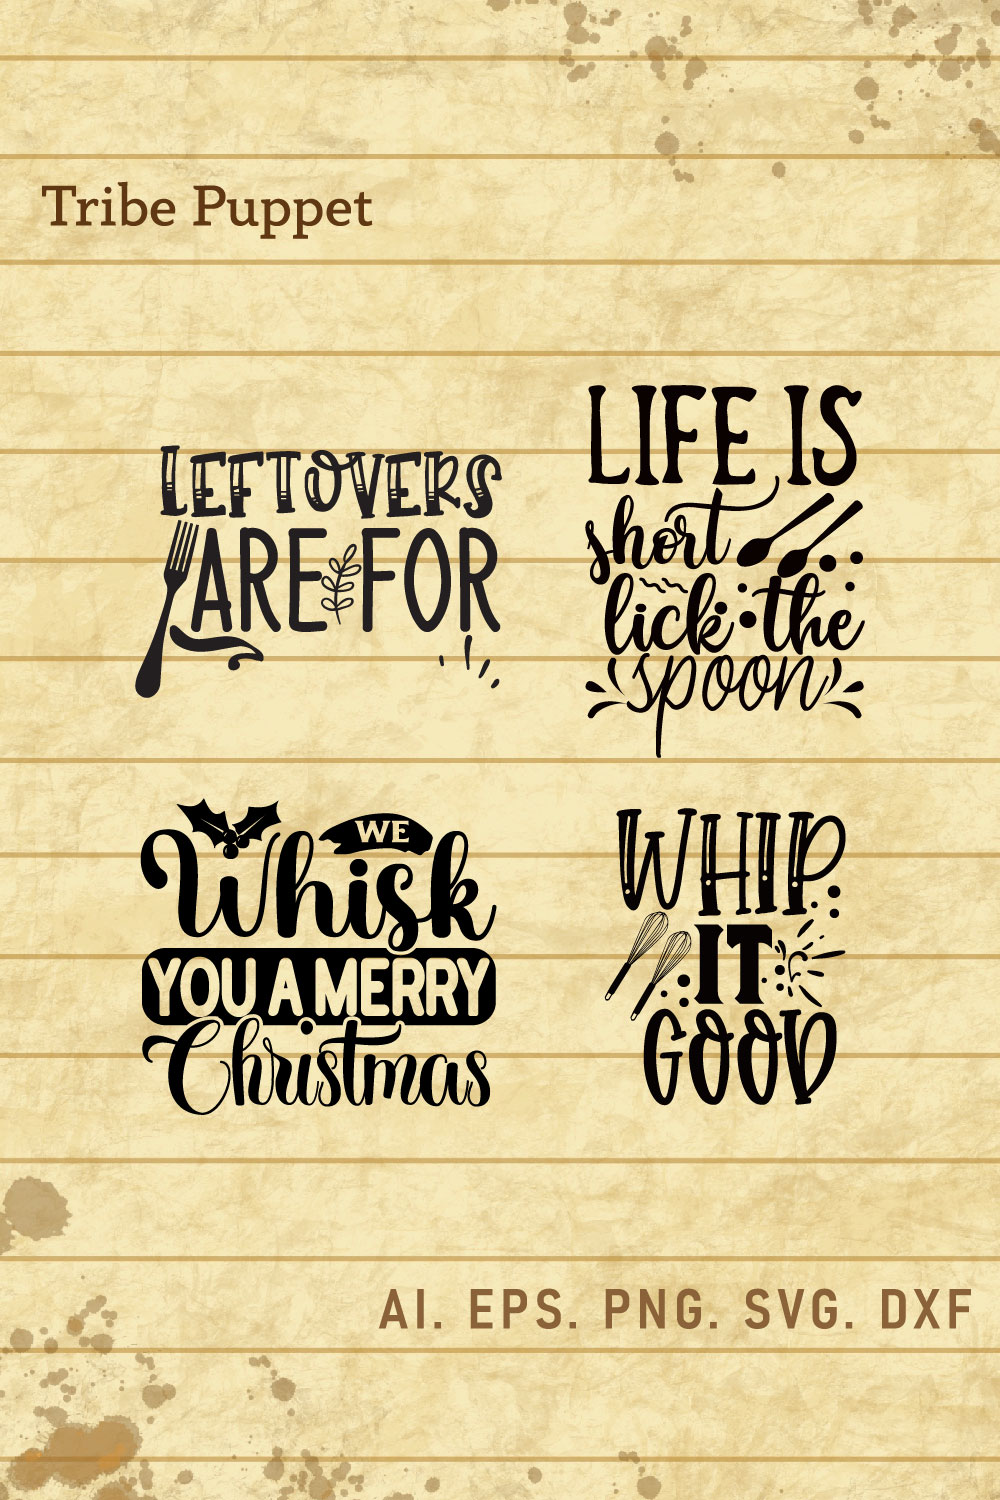 Tribe Puppet
LEFTOVERS
ARE FOR
LIFE IS
short
lick the
spoon
WE
Whisk
YOU A MERRY
Christmas
WHIP
IT
GOOD
AI. EPS. PNG. SVG. DXF